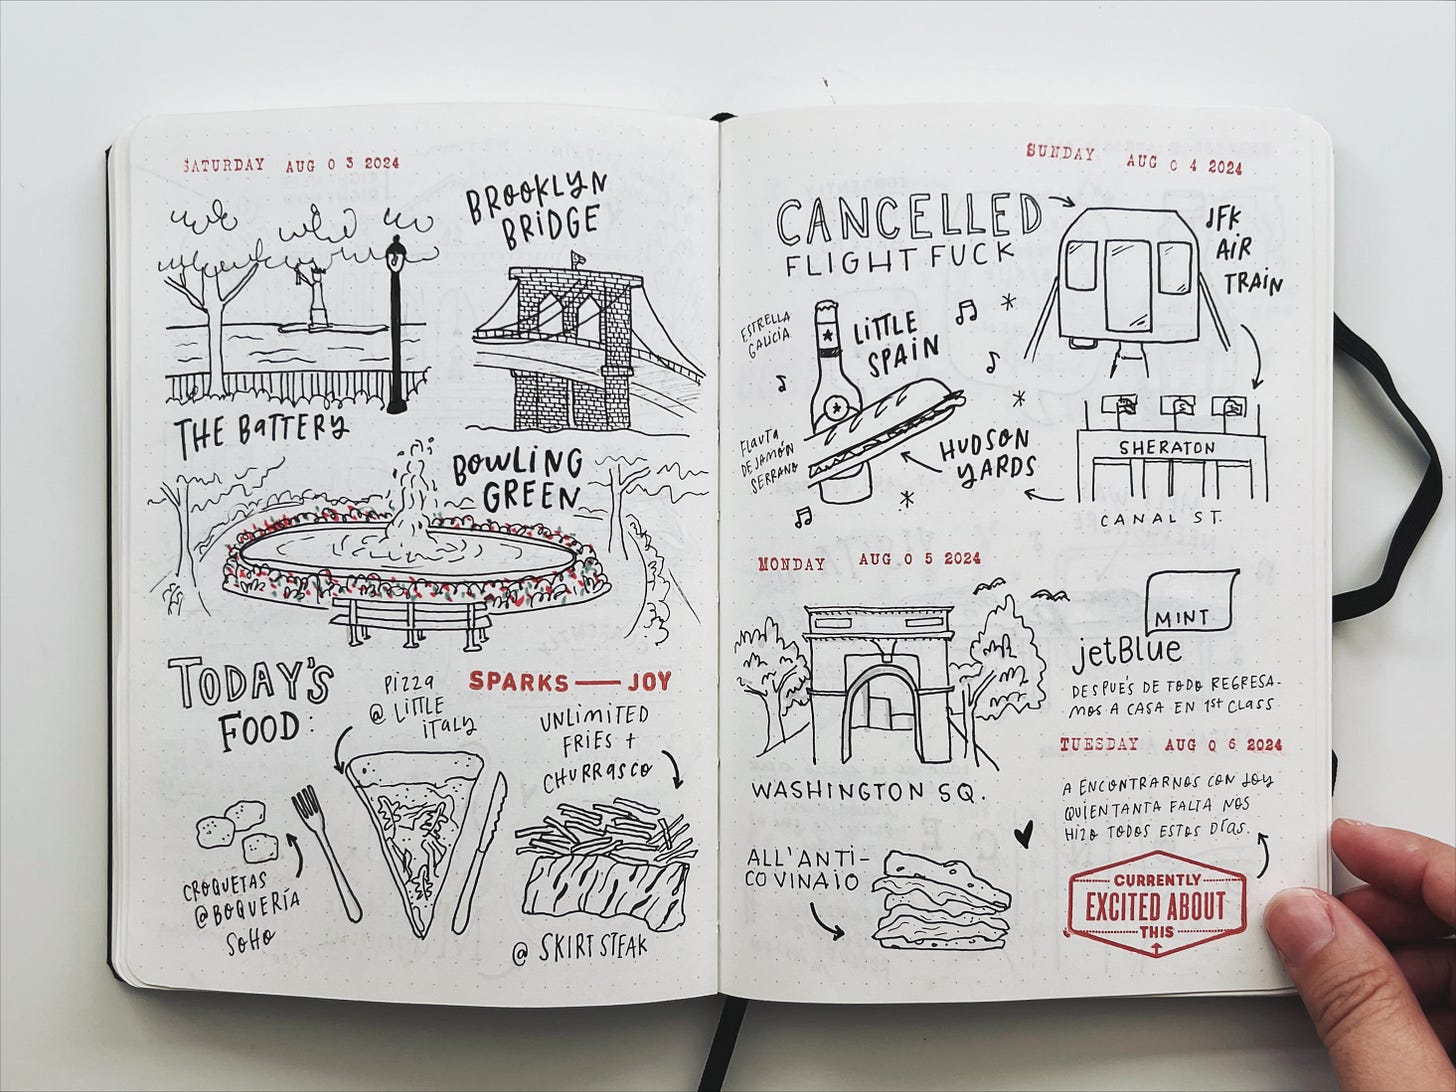 SATURDAY AUG 0 3 2024
BROOKLYN
BRIDGE
THE BATTERY
BOWLING
GREEN
TODAY'S
FOOD:
PIZZA
@ LITTLE
ITALY
SPARKS — JOY
UNLIMITED
FRIES +
CHURRASCO
CROQUETAS
@ BOQUERÍA
SOHO
@ SKIRT STEAK
SUNDAY AUG 0 4 2024
CANCELLED
FLIGHT FUCK
JFK
AIR
TRAIN
ESTRELLA
GALICIA
LITTLE
SPAIN
FLAUTA
DE JAMÓN
SERRANO
HUDSON
YARDS
SHERATON
CANAL ST.
MONDAY AUG 0 5 2024
WASHINGTON SQ.
MINT
jetBlue
DESPUÉS DE TODO REGRESA-
MOS A CASA EN 1st CLASS
ALL'ANTI-
CO VINAIO
TUESDAY AUG 0 6 2024
A ENCONTRARNOS CON JOY
QUIEN TANTA FALTA NOS
HIZO TODOS ESTOS DÍAS.
CURRENTLY
EXCITED ABOUT
THIS